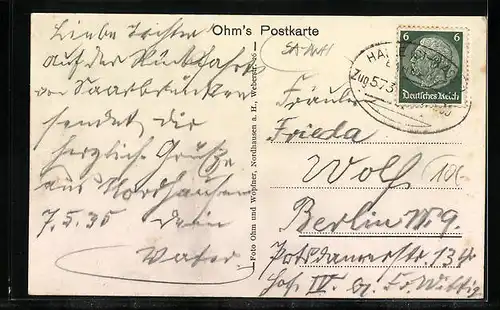 Ohm's Postkarte
Liebe Tochter!
Auf der Rückfahrt
von Saarbrücken
sendet dir
herzliche Grüße
aus Nordhausen
7.5.35 Dein
Vater.
Foto Ohm und Wopfner, Nordhausen a. H., Weberstr.
6 6
Deutsches Reich
Zug 573
Fräulein
Frieda
Wolf
Berlin W. 9.
Potsdamerstr. 134
Hof IV. bj. F. Wittig